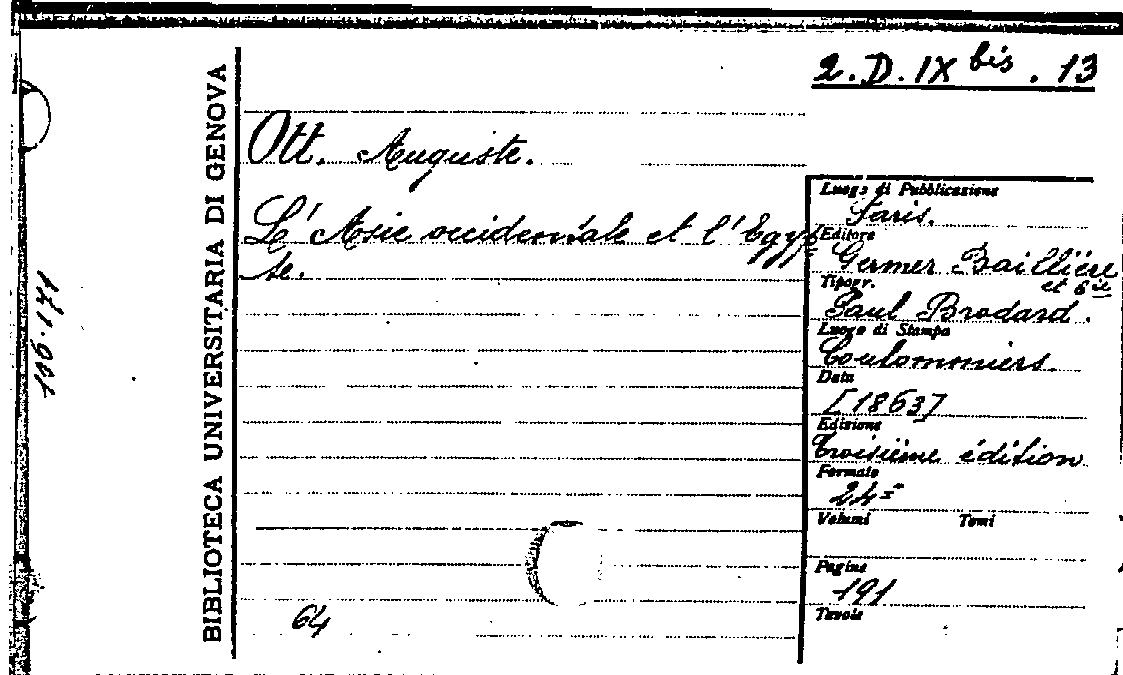 2.D.IX bis . 13
BIBLIOTECA UNIVERSITARIA DI GENOVA
Ott. Auguste.
L' Asie occidentale et l' Egyp=
te.
64
Luogo di Pubblicazione
Paris.
Editore
Germer Baillière
et Cie
Tipogr.
Paul Brodard.
Luogo di Stampa
Coulommiers.
Data
[1863]
Edizione
Troisième édition
Formato
24=
Volumi Tomi
Pagine
191
Tavole